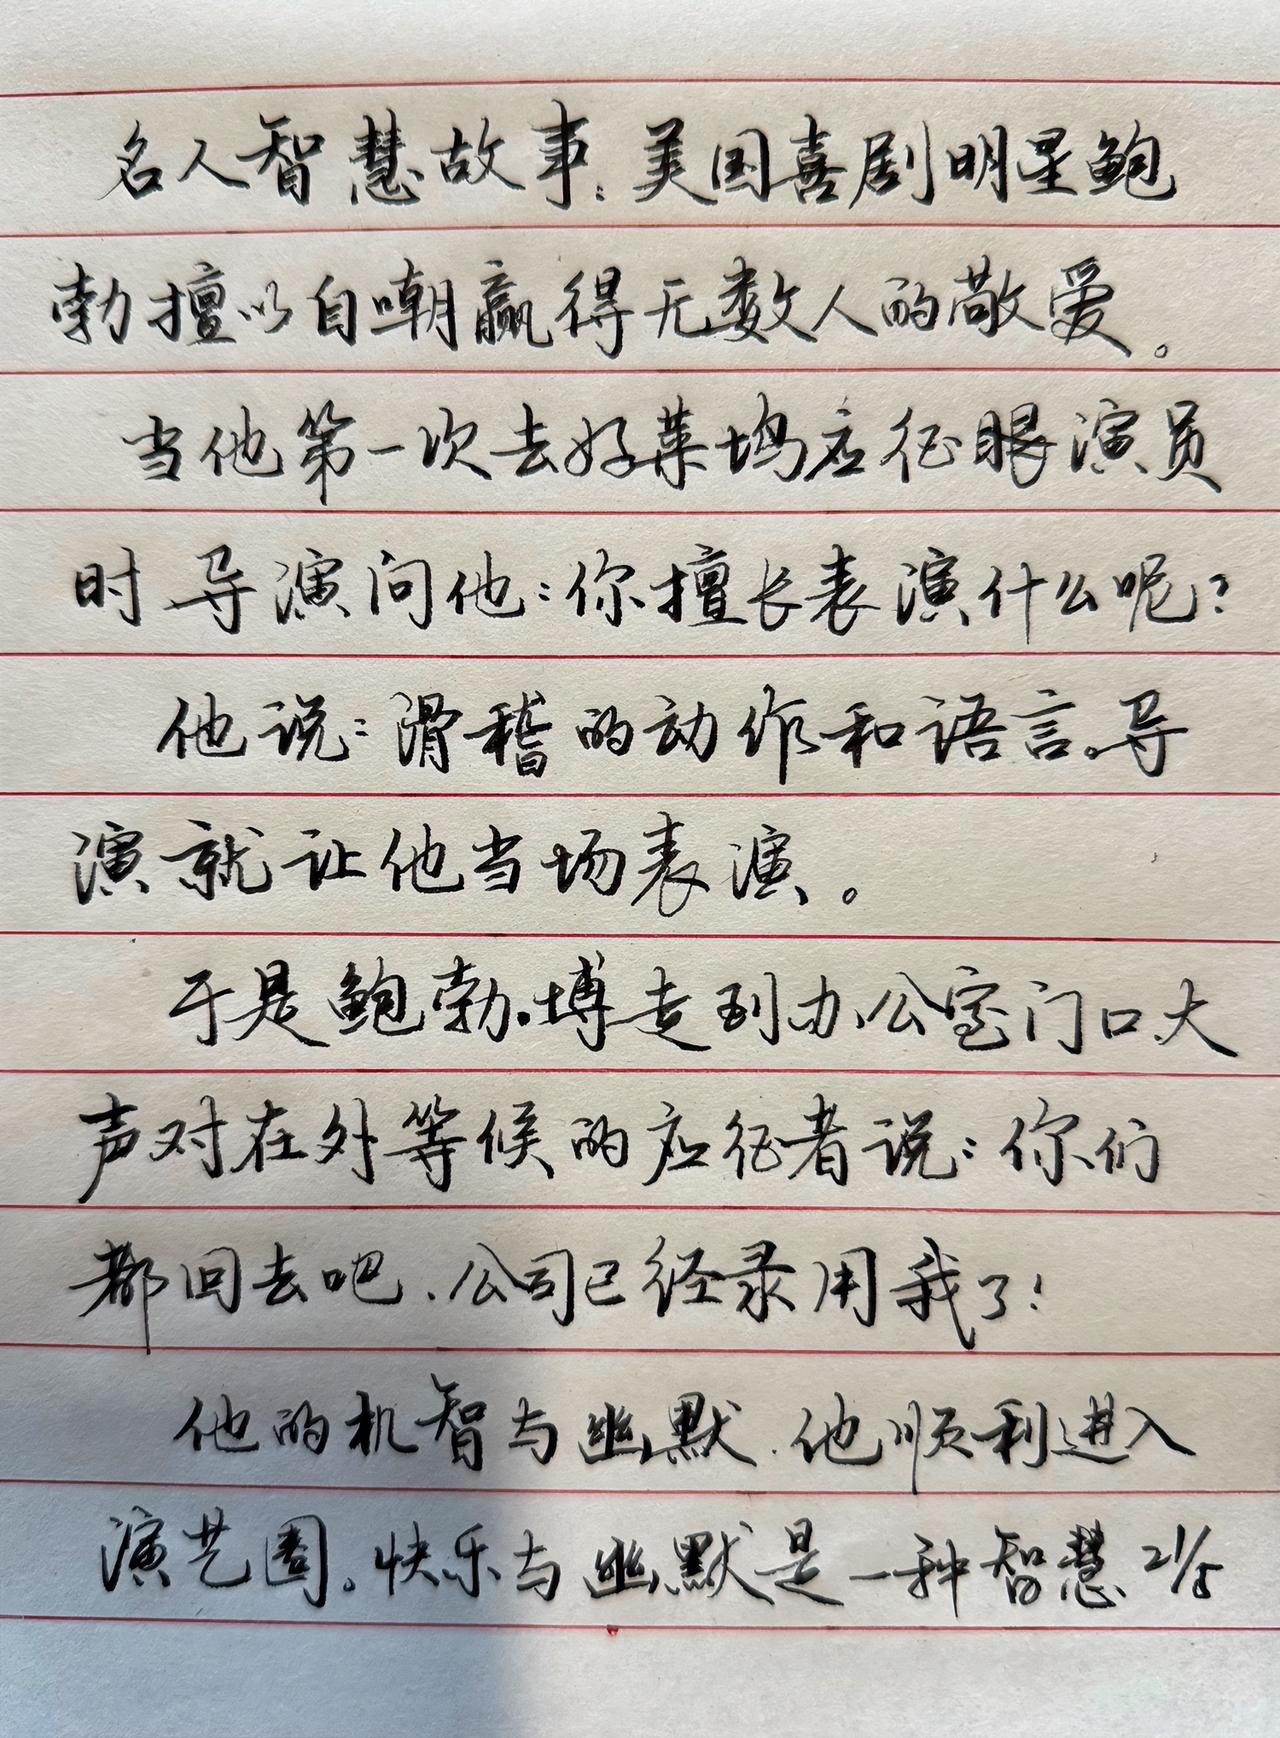 名人智慧故事：美国喜剧明星鲍
勃擅以自嘲赢得无数人的敬爱。
当他第一次去好莱坞应征眼演员
时导演问他：你擅长表演什么呢？
他说：滑稽的动作和语言。导
演就让他当场表演。
于是鲍勃.博走到办公室门口大
声对在外等候的应征者说：你们
都回去吧、公司已经录用我了！
他的机智与幽默.他顺利进入
演艺圈。快乐与幽默是一种智慧 21/5